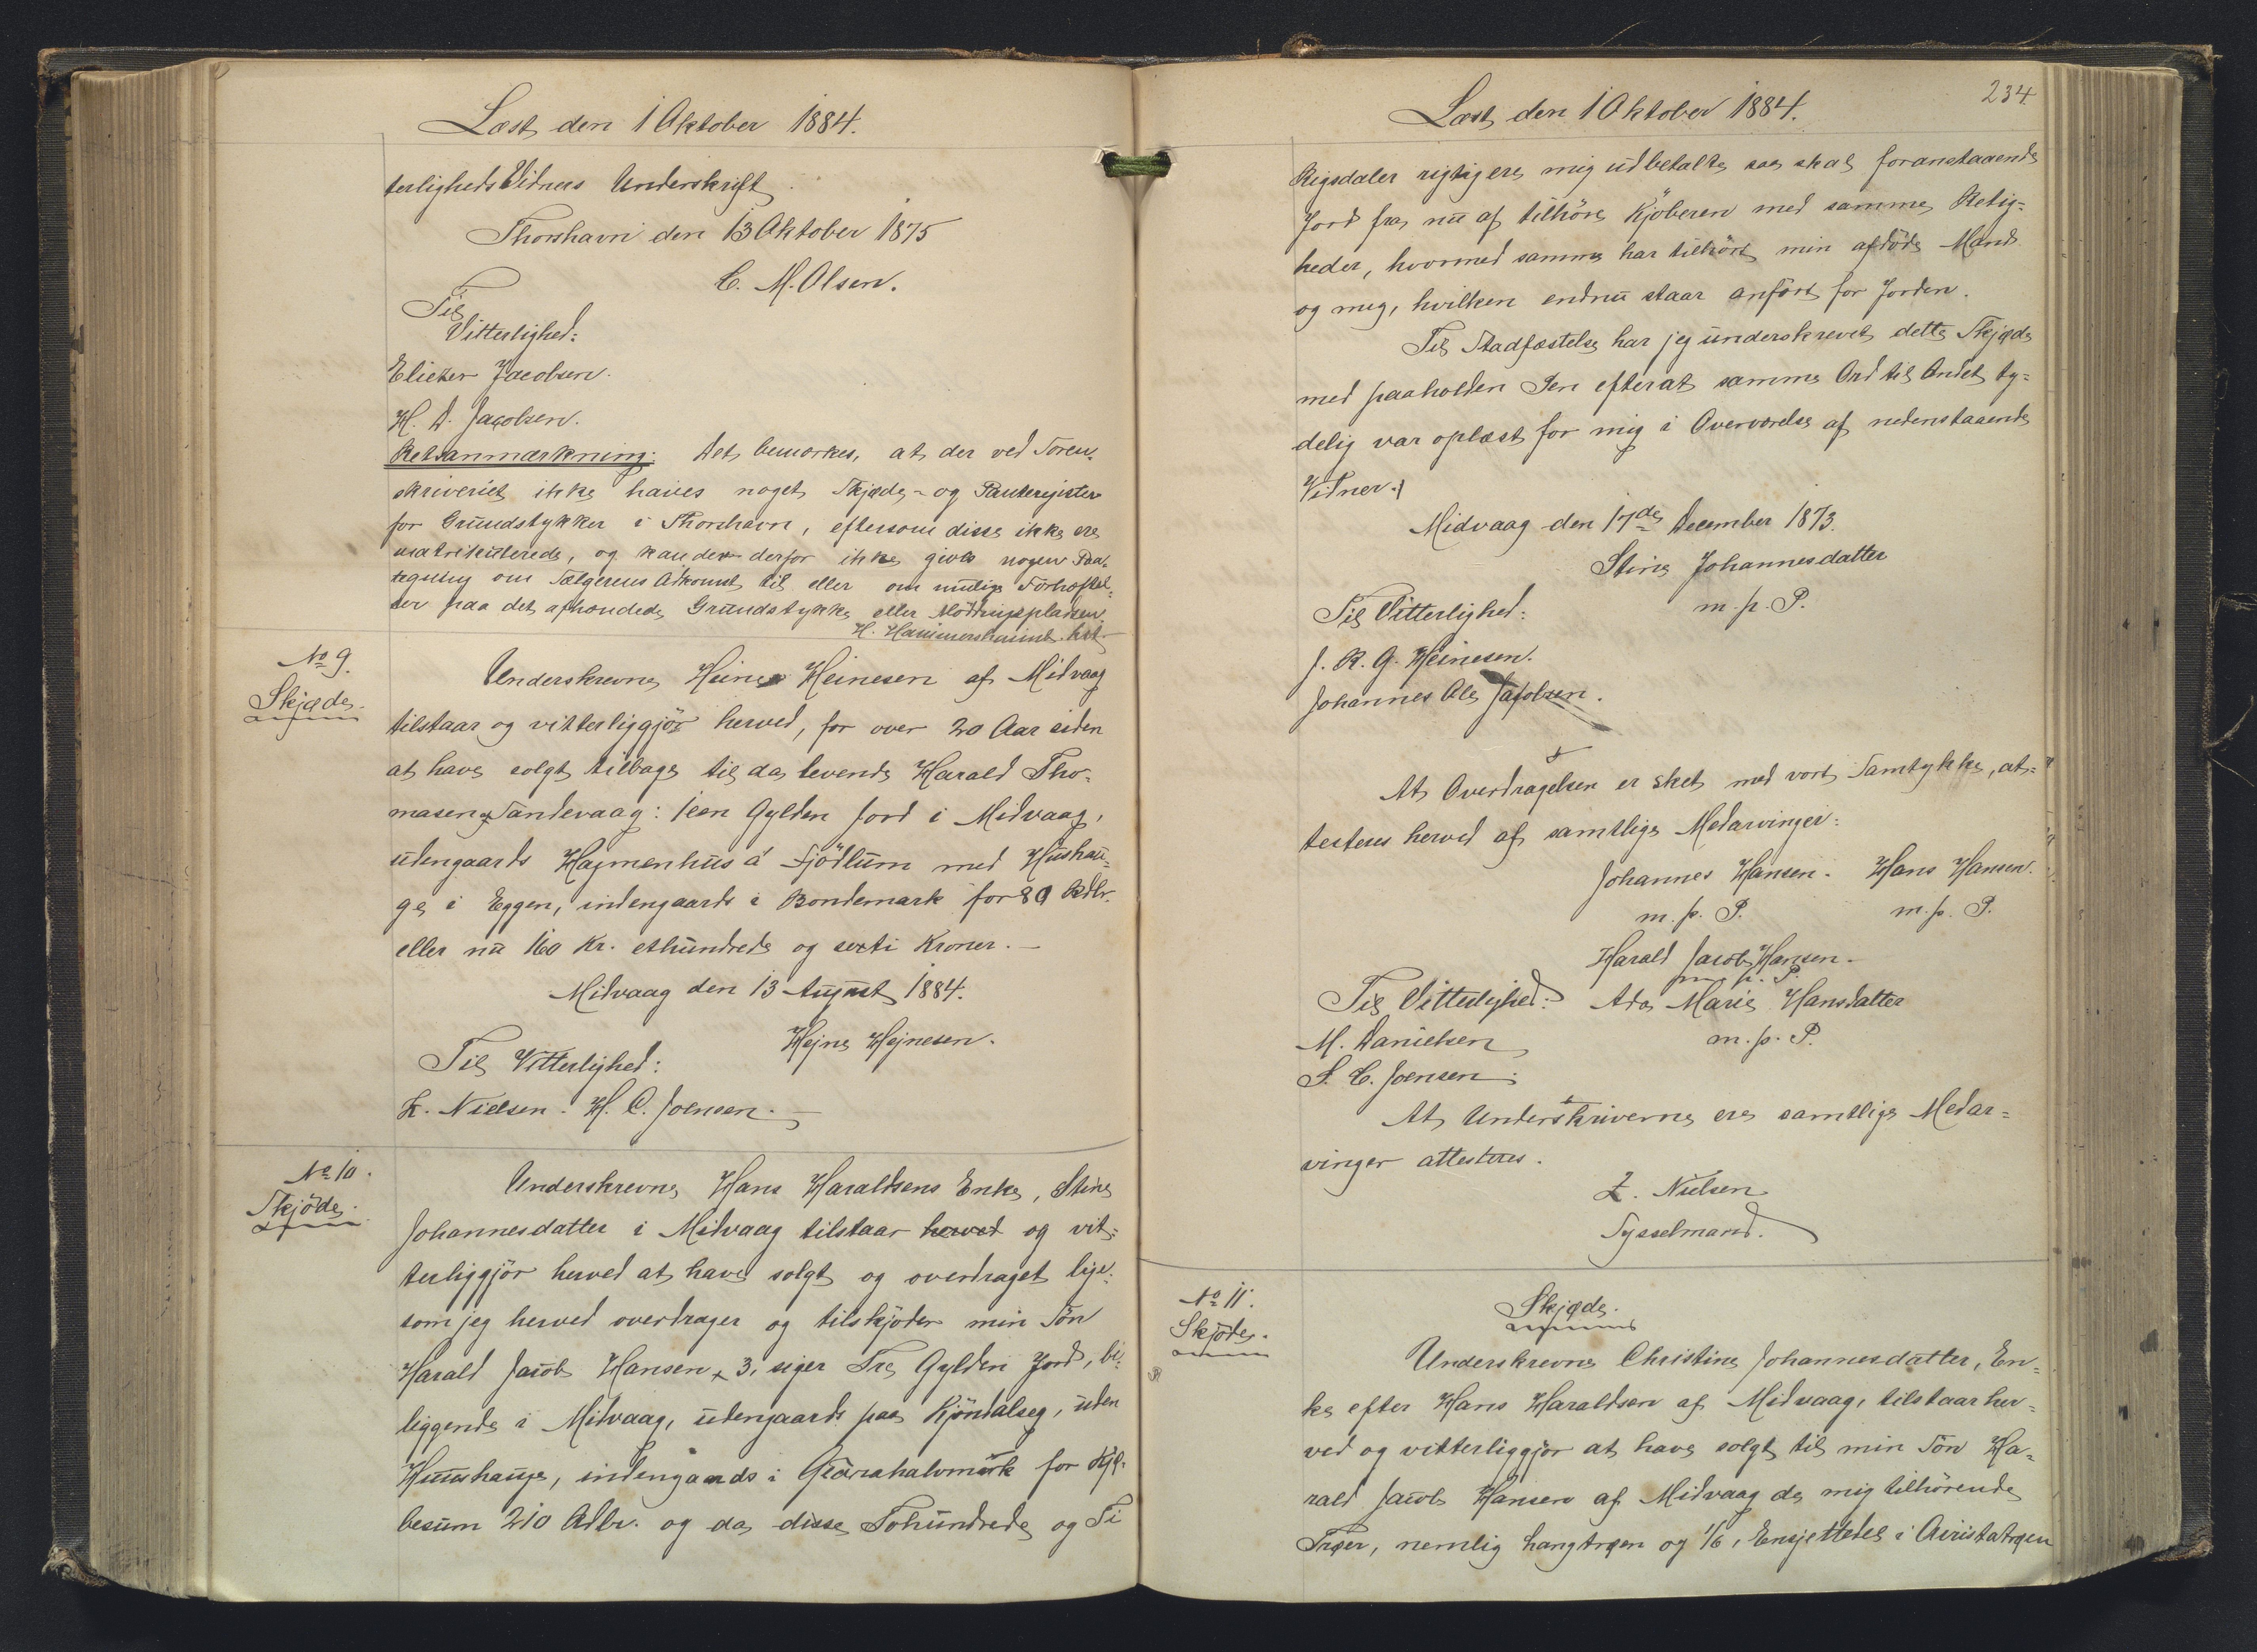 Læst den 1 Oktober 1884.
terligheds Vidners Underskrift.
Thorshavn den 13 Oktober 1875
C. M. Olsen.
Til
Vitterlighed:
Eliezer Jacobsen.
H. D. Jacobsen.
Retsanmærkning: Det bemærkes, at der ved Soren-
skriveriet ikke haves noget Skjøde- og Panteregister
for Grundstykker i Thorshavn, eftersom disse ikke ere
matrikulerede, og kan der derfor ikke gives nogen Paa-
tegning om Sælgerens Adkomst til eller om mulige Forhæftel-
ser paa det afhændede Grundstykke eller Mødningspladsen.
H. Hammershaimb. kst.
No 9.
Skjøde.
Underskrevne Heine Heinesen af Midvaag
tilstaar og vitterliggjör herved, for over 20 Aar siden
at have solgt tilbage til da levende Harald Tho-
masen Sandevaag: 1 een Gylden Jord i Midvaag,
udengaards Hagmenhus á Fjödlum med Hushau-
ge i Eggen, indengaards i Bondemark for 80 Rdlr.
eller nu 160 Kr. ethundrede og sexti Kroner.—
Midvaag den 13 August 1884.
Hejne Hejnesen.
Til Vitterlighed:
Z. Nielsen. H. C. Joensen.
No 10.
Skjöde.
Underskrevne Hans Haraldsens Enke, Stine
Johannesdatter i Midvaag tilstaar herved og vit-
terliggjör herved at have solgt og overdraget lige-
som jeg herved overdrager og tilskjöder min Sön
Harald Jacob Hansen 3, siger Tre Gylden Jord, be-
liggende i Midvaag, udengaards paa Kjöndalseg, uden
Huushauge, indengaards i for Kjö-
besum 210 Rdlr. og da disse Tohundrede og Ti
234
Læst den 1 Oktober 1884.
Rigsdaler rigtig ere mig udbetalte, saa skal foranstaaende
Jord fra nu af tilhöre Kjöberen med samme Retig-
heder, hvormed samme har tilhört min afdöde Mand
og mig, hvilken endnu staar anfört for Jorden.
Til Stadfæstelse har jeg underskrevet dette Skjøde
med paaholden Pen efterat samme Ord til Andet ty-
delig var oplæst for mig i Overværelse af nedenstaaende
Vidner.
Midvaag den 17de December 1873.
Stine Johannesdatter
m. p. P.
Til Vitterlighed:
J. R. G. Heinesen.
Johannes Ole Jacobsen.
At Overdragelsen er sket med vort Samtykke, at-
testeres herved af samtlige Medarvinger:
Johannes Hansen. Hans Hansen.
m. p. P. m. p. P.
Harald Jacob Hansen.
m. p. P.
Til Vitterlighed: Ada Marie Hansdatter
M. Danielsen m. p. P.
S. C. Joensen.
At Underskriverne ere samtlige Medar-
vinger attesteres.
Z. Nielsen
Sysselmand.
No 11.
Skjöde.
Skjøde.
Underskrevne Christine Johannesdatter, En-
ke efter Hans Haraldsen af Midvaag, tilstaar her-
ved og vitterliggjör at have solgt til min Sön Ha-
rald Jacob Hansen af Midvaag de mig tilhörende
Trøer, nemlig Langtrøen og 1/6, Ensjettedel i